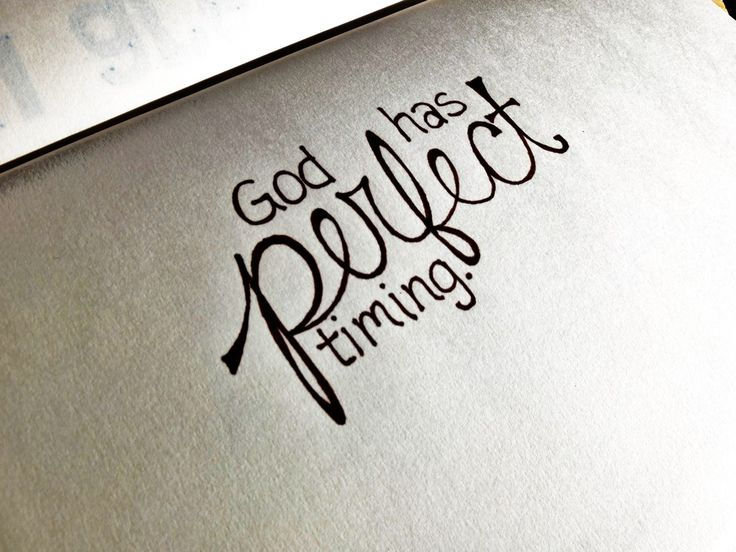 God has
perfect
timing.